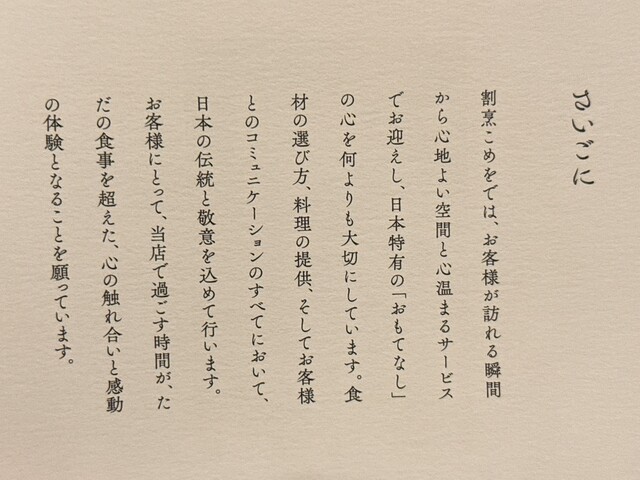 さいごに
割烹こめをでは、お客様が訪れる瞬間
から心地よい空間と心温まるサービス
でお迎えし、日本特有の「おもてなし」
の心を何よりも大切にしています。食
材の選び方、料理の提供、そしてお客様
とのコミュニケーションのすべてにおいて、
日本の伝統と敬意を込めて行います。
お客様にとって、当店で過ごす時間が、た
だの食事を超えた、心の触れ合いと感動
の体験となることを願っています。